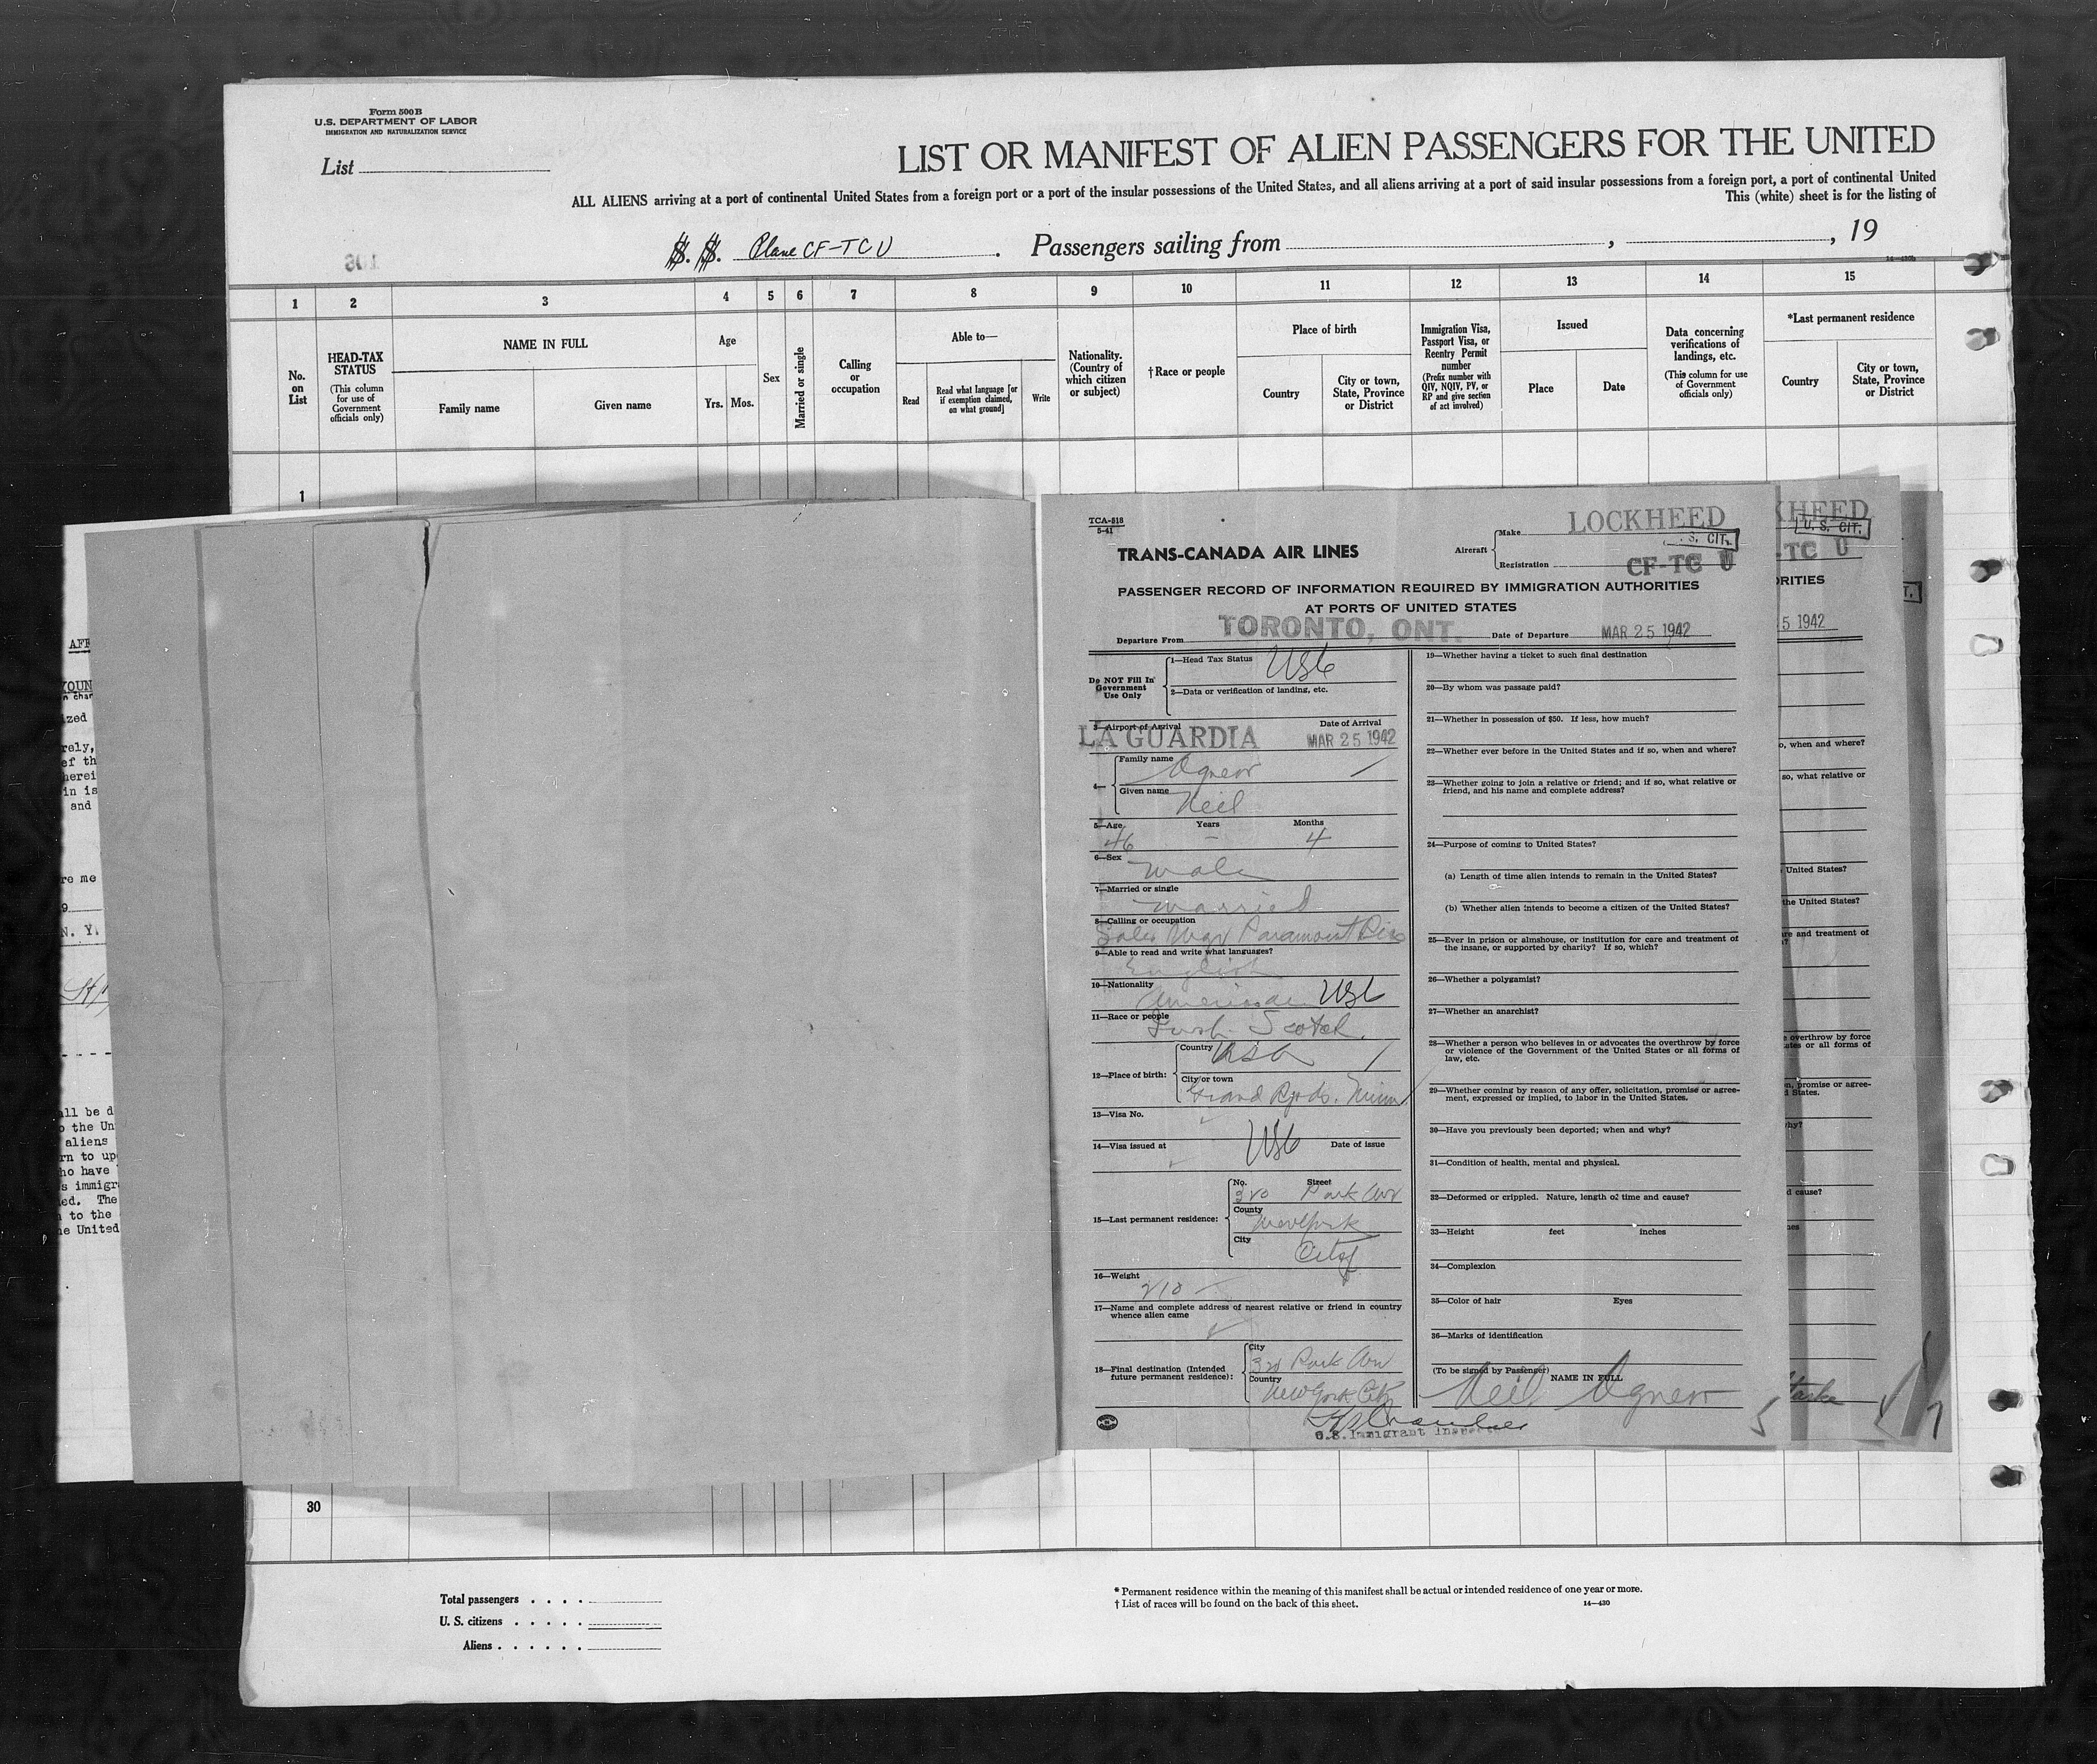 Form 500 B
U.S. DEPARTMENT OF LABOR
IMMIGRATION AND NATURALIZATION SERVICE
List
LIST OR MANIFEST OF ALIEN PASSENGERS FOR THE UNITED
ALL ALIENS arriving at a port of continental United States from a foreign port or a port of the insular possessions of the United States, and all aliens arriving at a port of said insular possessions from a foreign port, a port of continental United
This (white) sheet is for the listing of
S. S. Plane CF-TCU. Passengers sailing from , , 19
14-430b
1 2 3 4 5 6 7 8 9 10 11 12 13 14 15
No. on List
HEAD-TAX STATUS
(This column for use of Government officials only)
NAME IN FULL
Family name
Given name
Age
Yrs. Mos.
Sex
Married or single
Calling or occupation
Able to—
Read
Read what language [or if exemption claimed, on what ground]
Write
Nationality. (Country of which citizen or subject)
†Race or people
Place of birth
Country
City or town, State, Province or District
Immigration Visa, Passport Visa, or Reentry Permit number
(Prefix number with QIV, NQIV, PV, or RP and give section of act involved)
Issued
Place
Date
Data concerning verifications of landings, etc.
(This column for use of Government officials only)
*Last permanent residence
Country
City or town, State, Province or District
1
AFF
YOUN
n char
ized
rely,
ef th
herei
in is
and
re me
9
N. Y.
all be d
o the Un
aliens
rn to up
ho have
s immigr
ed. The
n to the
he United
TCA-818
5-41
TRANS-CANADA AIR LINES
Aircraft
Make LOCKHEED
S. CIT.
Registration CF-TC U
PASSENGER RECORD OF INFORMATION REQUIRED BY IMMIGRATION AUTHORITIES
AT PORTS OF UNITED STATES
Departure From TORONTO, ONT. Date of Departure MAR 25 1942
Do NOT Fill In Government Use Only
1—Head Tax Status USC
2—Data or verification of landing, etc.
3—Airport of Arrival Date of Arrival
LA GUARDIA MAR 25 1942
4—
Family name Agnew
Given name Neil
5—Age Years Months
46 - 4
6—Sex
male
7—Married or single
married
8—Calling or occupation
Sales Mgr Paramount Pics
9—Able to read and write what languages?
English
10—Nationality
American USC
11—Race or people
Irish Scotch.
12—Place of birth:
Country USA
City or town
Grand Rpds. Minn
13—Visa No.
14—Visa issued at USC Date of issue
15—Last permanent residence:
No. Street
320 Park Ave
County
New York
City
City
16—Weight
210
17—Name and complete address of nearest relative or friend in country
whence alien came
18—Final destination (Intended future permanent residence):
City
320 Park Ave
Country
New York City
U.S. Immigrant Inspector
19—Whether having a ticket to such final destination
20—By whom was passage paid?
21—Whether in possession of $50. If less, how much?
22—Whether ever before in the United States and if so, when and where?
23—Whether going to join a relative or friend; and if so, what relative or
friend, and his name and complete address?
24—Purpose of coming to United States?
(a) Length of time alien intends to remain in the United States?
(b) Whether alien intends to become a citizen of the United States?
25—Ever in prison or almshouse, or institution for care and treatment of
the insane, or supported by charity? If so, which?
26—Whether a polygamist?
27—Whether an anarchist?
28—Whether a person who believes in or advocates the overthrow by force
or violence of the Government of the United States or all forms of
law, etc.
29—Whether coming by reason of any offer, solicitation, promise or agree-
ment, expressed or implied, to labor in the United States.
30—Have you previously been deported; when and why?
31—Condition of health, mental and physical.
32—Deformed or crippled. Nature, length of time and cause?
33—Height feet inches
34—Complexion
35—Color of hair Eyes
36—Marks of identification
(To be signed by Passenger)
NAME IN FULL
Neil Agnew
5
KHEED
U. S. CIT.
-TC U
ORITIES
5 1942
o, when and where?
so, what relative or
United States?
the United States?
are and treatment of
?
e overthrow by force
ates or all forms of
n, promise or agree-
d States.
why?
d cause?
hes
tarke
T.
7
30
Total passengers
U. S. citizens
Aliens
* Permanent residence within the meaning of this manifest shall be actual or intended residence of one year or more.
† List of races will be found on the back of this sheet.
14—430